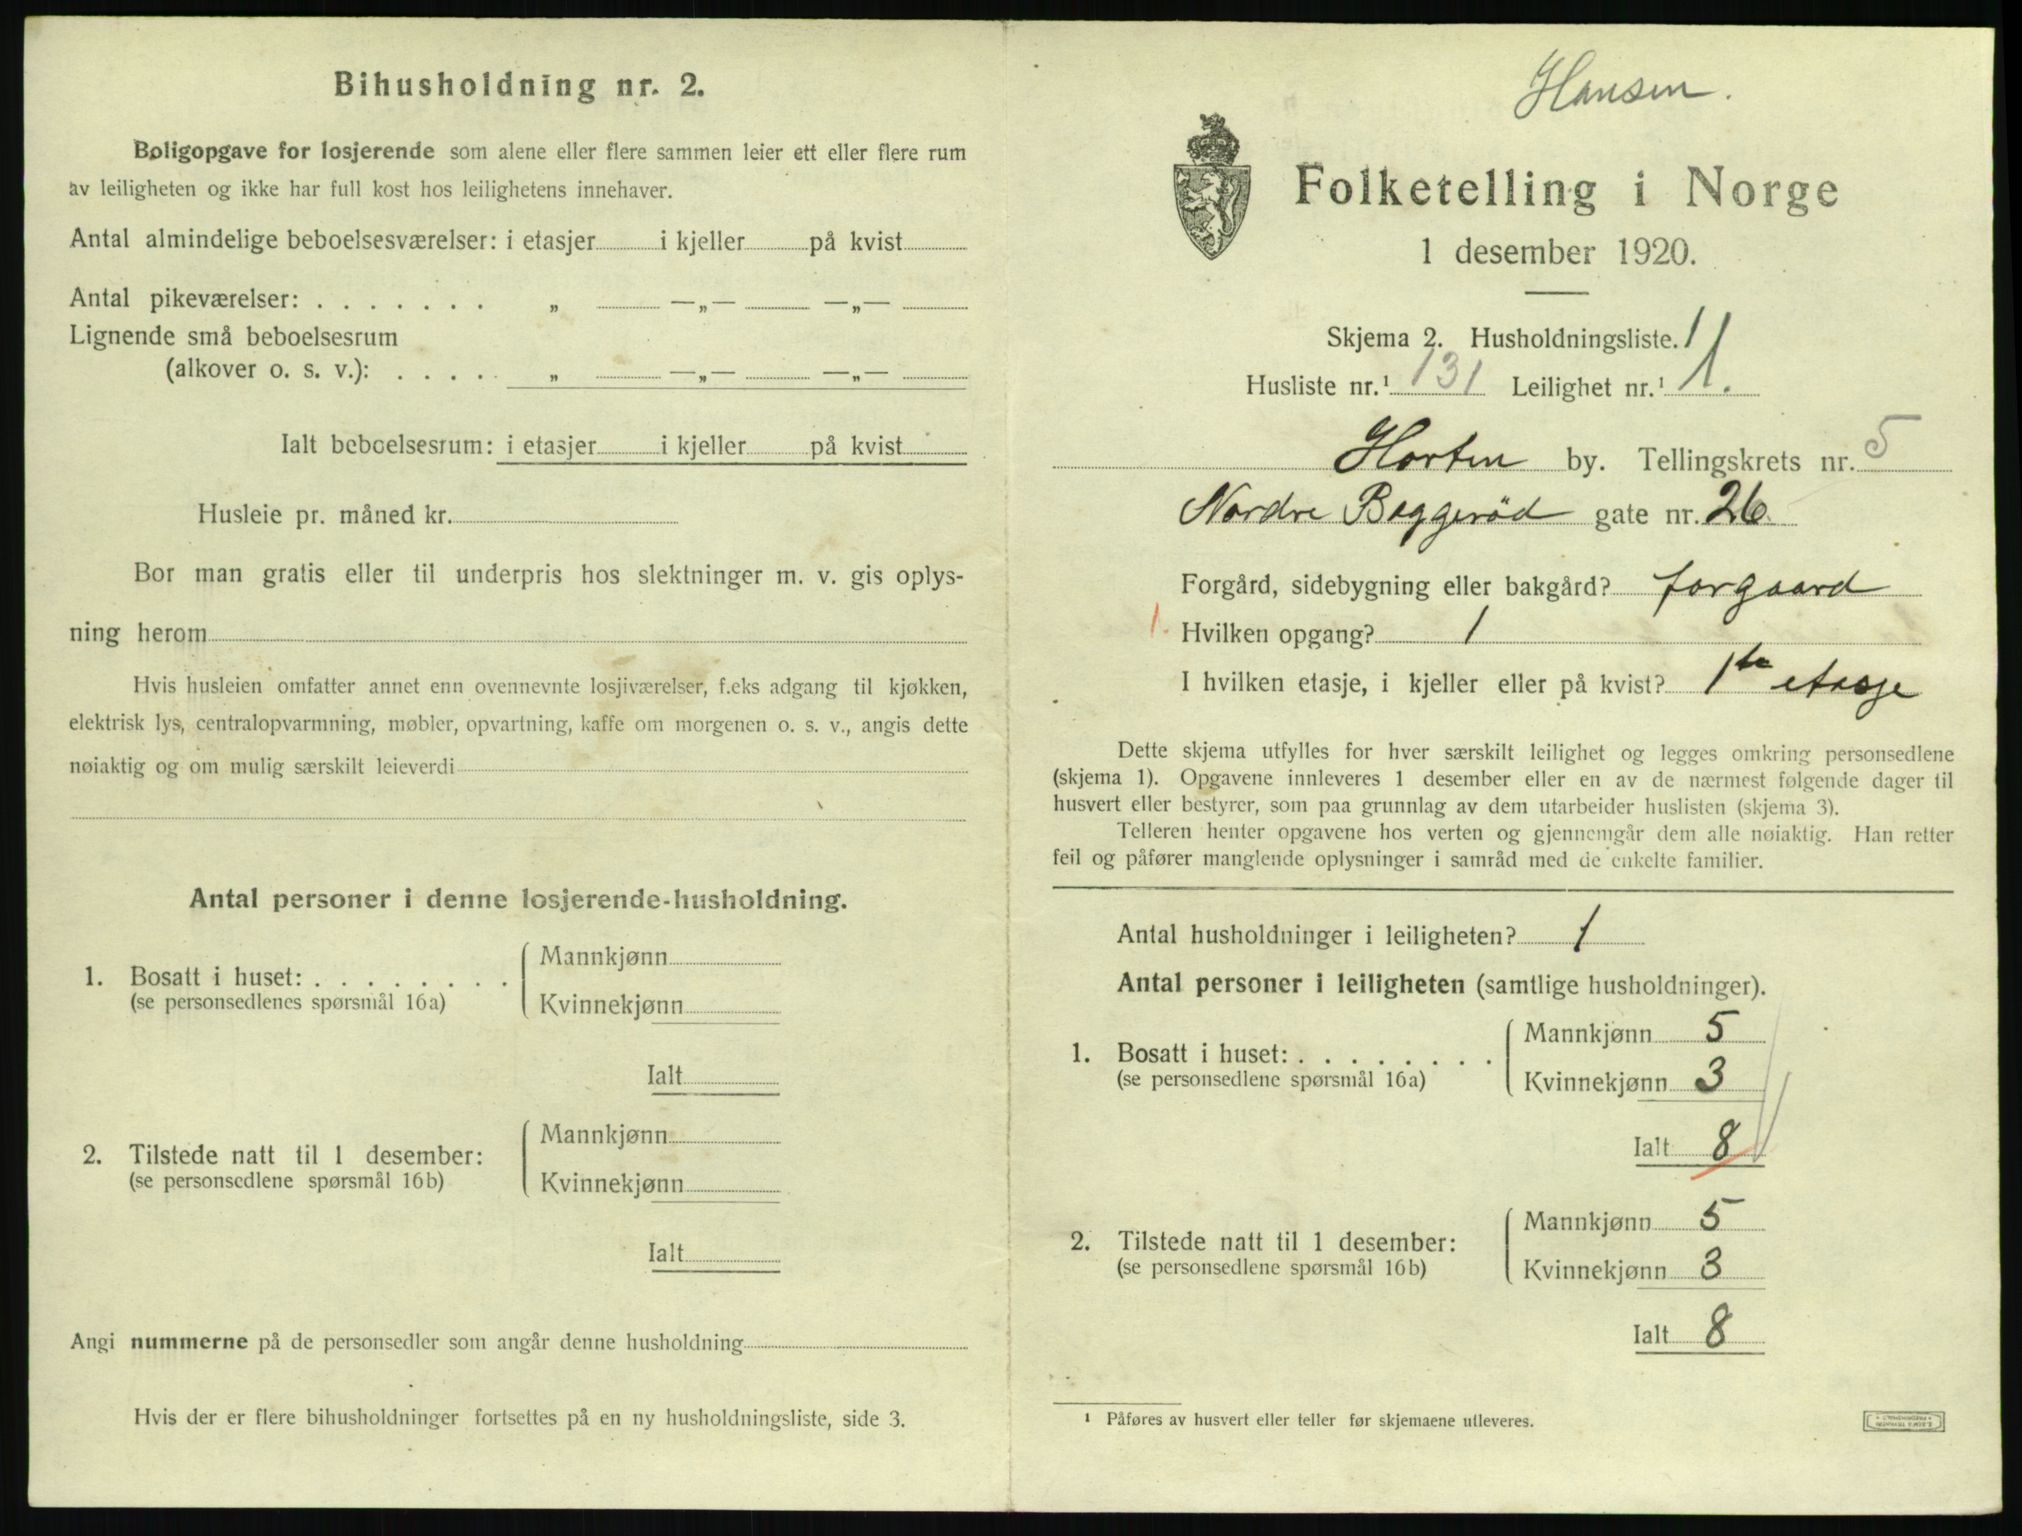 Bihusholdning nr. 2.
Boligopgave for losjerende som alene eller flere sammen leier ett eller flere rum
av leiligheten og ikke har full kost hos leilighetens innehaver.
Antal almindelige beboelsesværelser: i etasjer i kjeller på kvist
Antal pikeværelser: . . . . . . . „ —„— —„—
Lignende små beboelsesrum
(alkover o. s. v.): . . . . . „ —„— —„—
Ialt beboelsesrum: i etasjer i kjeller på kvist
Husleie pr. måned kr.
Bor man gratis eller til underpris hos slektninger m. v. gis oplys-
ning herom
Hvis husleien omfatter annet enn ovennevnte losjiværelser, f.eks adgang til kjøkken,
elektrisk lys, centralopvarmning, møbler, opvartning, kaffe om morgenen o. s. v., angis dette
nøiaktig og om mulig særskilt leieverdi
Antal personer i denne losjerende-husholdning.
Mannkjønn
1. Bosatt i huset: . . . . . . . .
(se personsedlenes spørsmål 16a)
Kvinnekjønn
Ialt
Mannkjønn
2. Tilstede natt til 1 desember:
(se personsedlene spørsmål 16b)
Kvinnekjønn
Ialt
Angi nummerne på de personsedler som angår denne husholdning
Hvis der er flere bihusholdninger fortsettes på en ny husholdningsliste, side 3.
Hansen.
Folketelling i Norge
1 desember 1920.
Skjema 2. Husholdningsliste. 11
Husliste nr.¹ 131 Leilighet nr.¹ 1.
Horten by. Tellingskrets nr. 5
Nordre Baggerød gate nr. 26.
Forgård, sidebygning eller bakgård? forgaard
1. Hvilken opgang? 1
I hvilken etasje, i kjeller eller på kvist? 1te etasje
Dette skjema utfylles for hver særskilt leilighet og legges omkring personsedlene
(skjema 1). Opgavene innleveres 1 desember eller en av de nærmest følgende dager til
husvert eller bestyrer, som paa grunnlag av dem utarbeider huslisten (skjema 3).
Telleren henter opgavene hos verten og gjennemgår dem alle nøiaktig. Han retter
feil og påfører manglende oplysninger i samråd med de enkelte familier.
Antal husholdninger i leiligheten? 1
Antal personer i leiligheten (samtlige husholdninger).
Mannkjønn 5
1. Bosatt i huset: . . . . . . . .
(se personsedlene spørsmål 16a)
Kvinnekjønn 3
Ialt 8
Mannkjønn 5
2. Tilstede natt til 1 desember:
(se personsedlene spørsmål 16b)
Kvinnekjønn 3
Ialt 8
¹ Påføres av husvert eller teller før skjemaene utleveres.